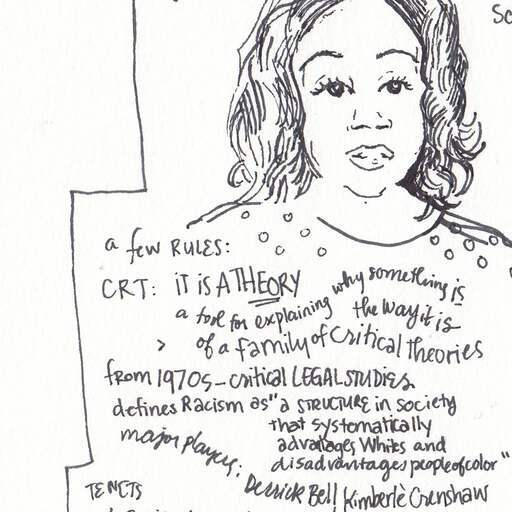 Sc
a few RULES:
CRT: iT is A THEORY
a tool for explaining why something is
the way it is
> of a family of critical Theories
from 1970s - critical LEGAL STUDIES
defines Racism as "a STRUCTURE in society
that systematically
advantages Whites and
disadvantages people of color"
major players:
Derrick Bell, Kimberlè Crenshaw
TENETS